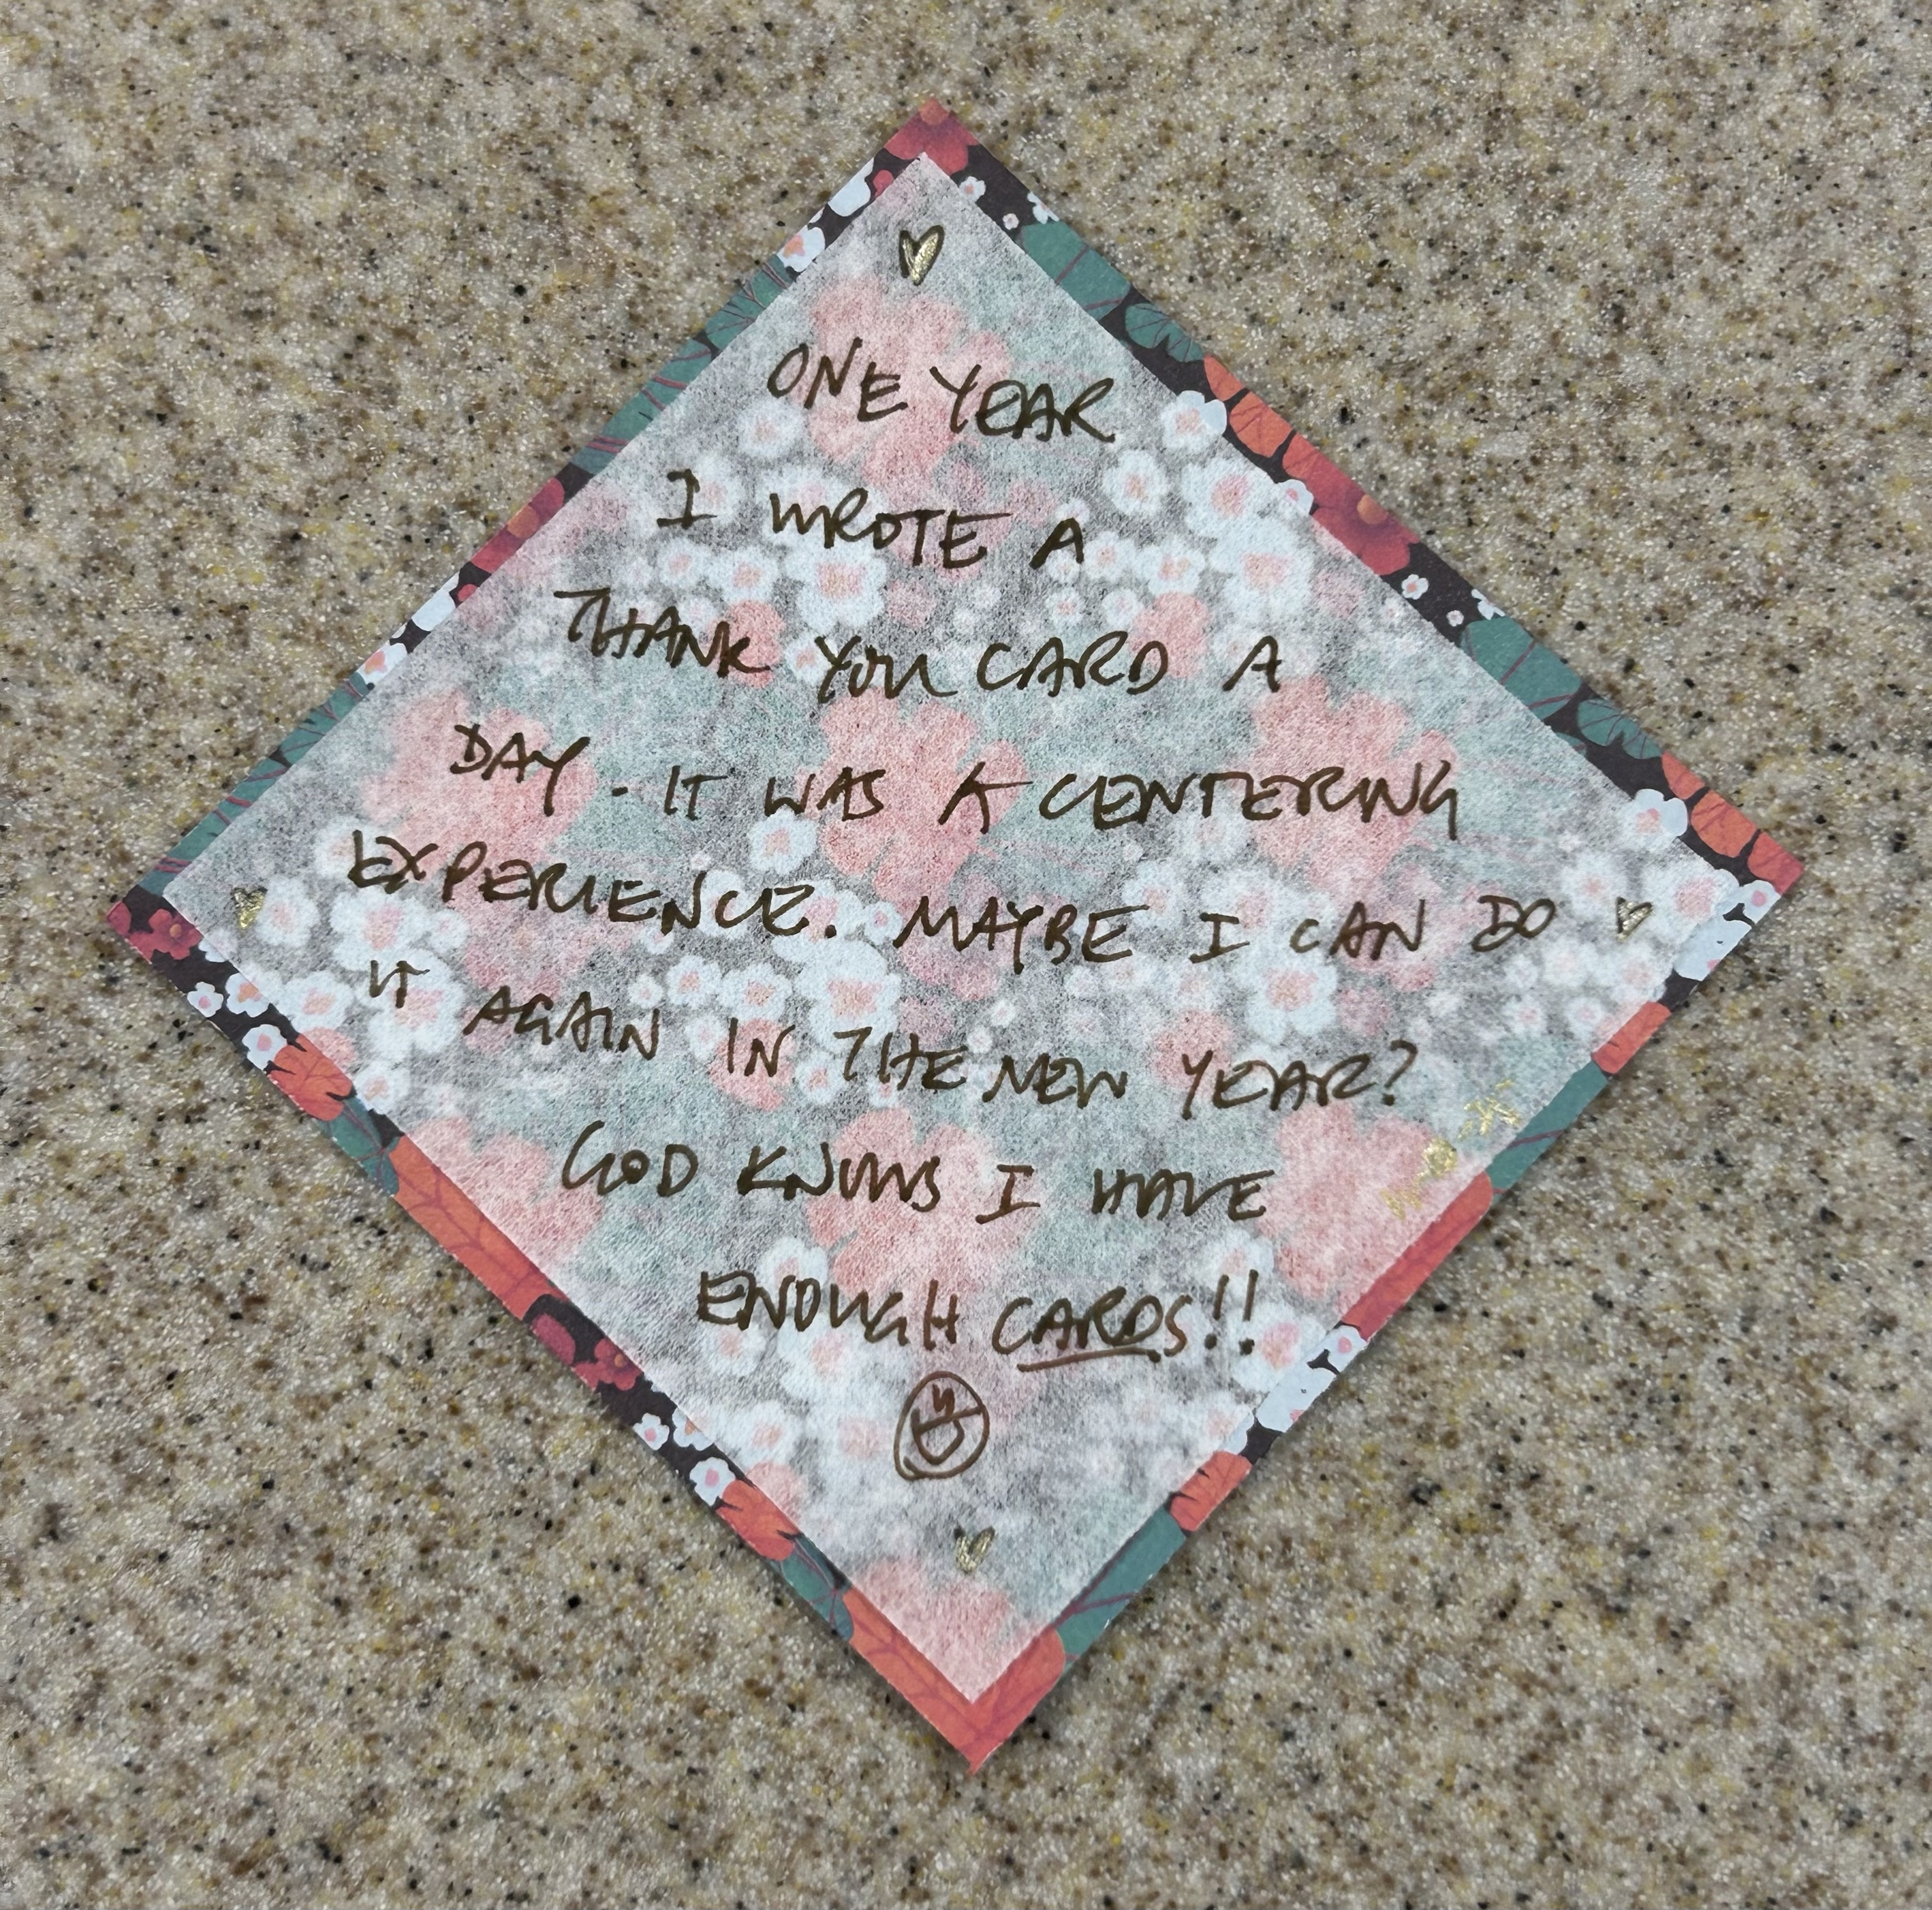 ONE YEAR
I WROTE A
THANK YOU CARD A
DAY - IT WAS A CENTERING
EXPERIENCE. MAYBE I CAN DO
IT AGAIN IN THE NEW YEAR?
GOD KNOWS I HAVE
ENOUGH CARDS!!